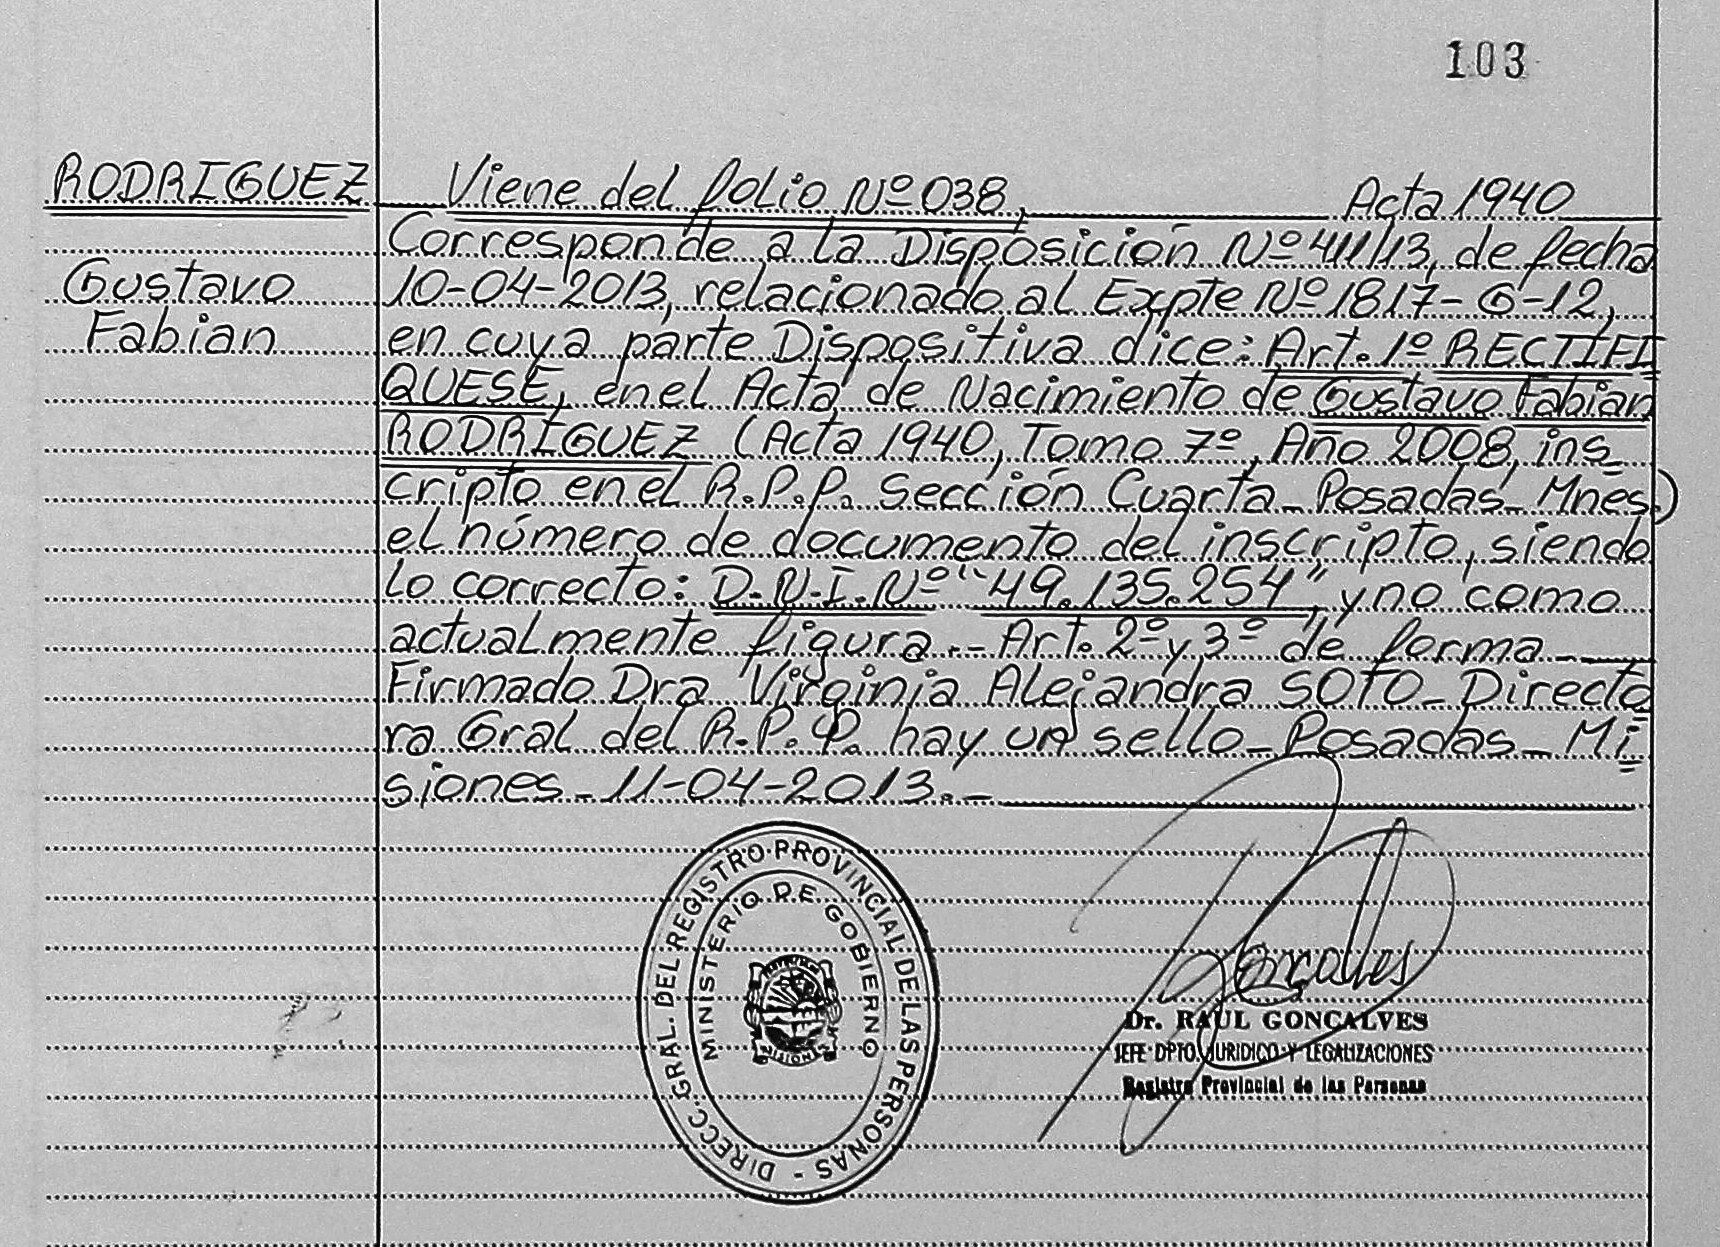 103
RODRIGUEZ Viene del folio Nº 038, Acta 1940
Corresponde a la Disposición Nº 411/13, de fecha
Gustavo 10-04-2013, relacionado al Expte Nº 1817-G-12,
Fabian en cuya parte Dispositiva dice: Art. 1º RECTIFI
QUESE, en el Acta de Nacimiento de Gustavo Fabian
RODRIGUEZ (Acta 1940, Tomo 7º, Año 2008, ins
cripto en el R.P.P. Sección Cuarta - Posadas - Mnes)
el número de documento del inscripto, siendo
lo correcto: D.N.I. Nº "49.135.254", y no como
actualmente figura.- Art. 2º y 3º de forma
Firmado Dra Virginia Alejandra SOTO - Directo
ra Gral del R.P.P. hay un sello - Posadas - Mi
siones - 11-04-2013.-
DIRECC. GRAL. DEL REGISTRO PROVINCIAL DE LAS PERSONAS -
MINISTERIO DE GOBIERNO
MISIONES
Gonçalves
Dr. RAUL GONCALVES
JEFE DPTO. JURIDICO Y LEGALIZACIONES
Registro Provincial de las Personas